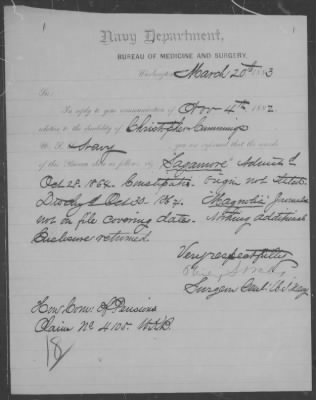 Navy Department,
BUREAU OF MEDICINE AND SURGERY,
Washington, March 20th 1883
Sir:
In reply to your communication of Nov 4th 1882
relative to the disability of Christopher Cummings
U. S. Navy, you are informed that the records
of this Bureau show as follows, viz: "Sagamore" Admitted
Oct 28. 1864. Constipatio. Origin not stated.
Disch'd Oct 30. 1864. "Magnolia" Journals
not on file covering dates. Nothing additional.
Enclosure returned.
Very respectfully
Surgeon Genl. U.S. Navy
Hon. Com. of Pensions
Claim No 4105.
18